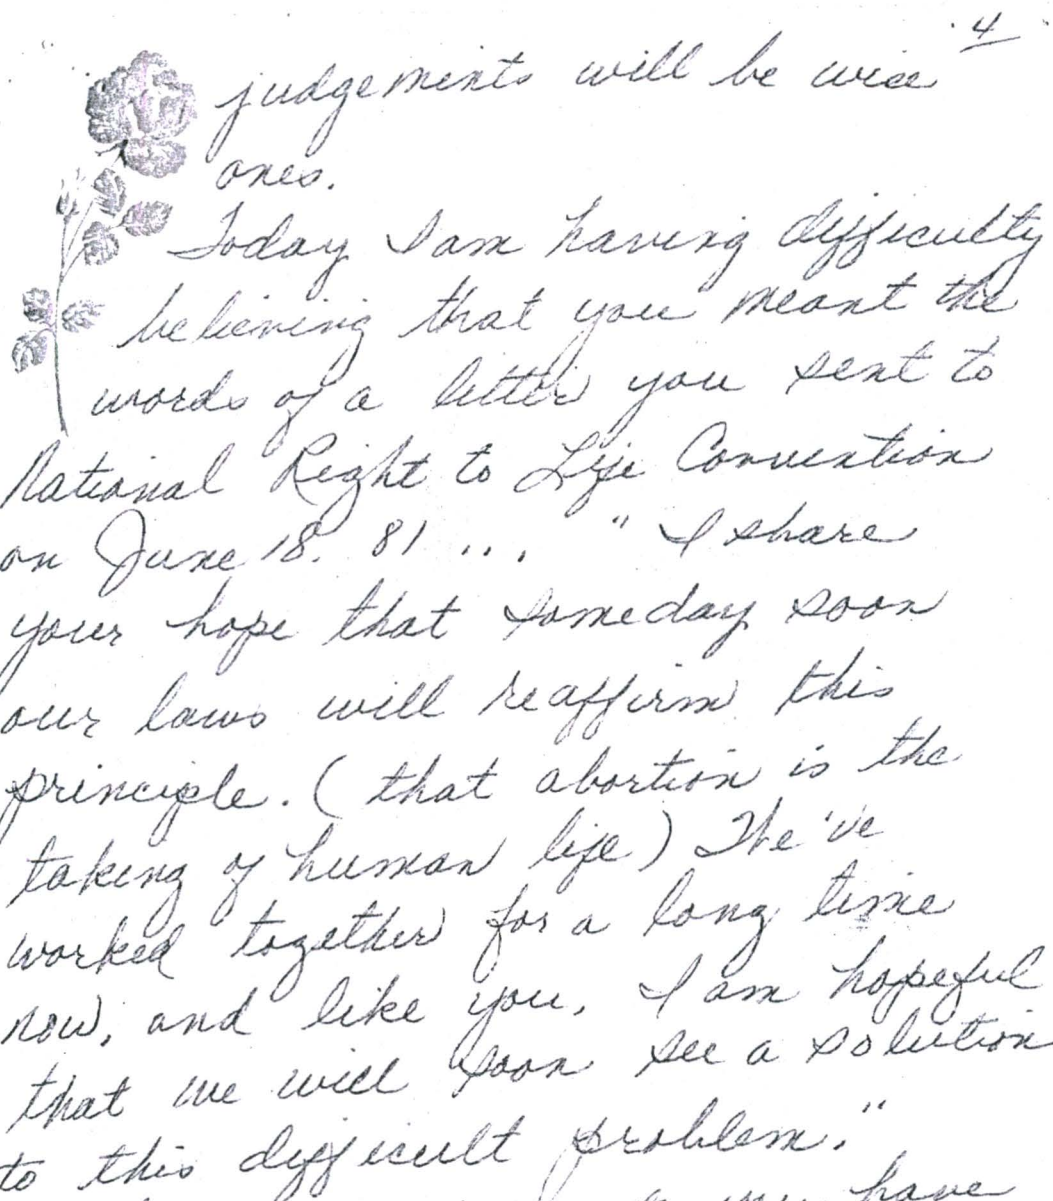 4
judgements will be wise
ones.
Today I am having difficulty
believing that you meant the
words of a letter you sent to
National Right to Life Convention
on June 18. 81 ... " I share
your hope that someday soon
our laws will reaffirm this
principle. ( that abortion is the
taking of human life) We've
worked together for a long time
now, and like you, I am hopeful
that we will soon see a solution
to this difficult problem."
have